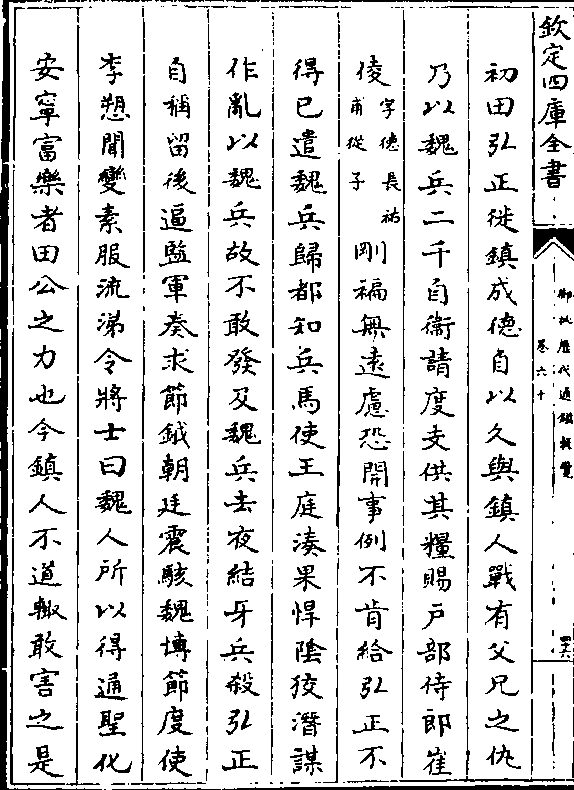 欽定四庫全書
御批歷代通鑑輯覽
卷六十
初田弘正徙鎮成德自以久與鎮人戰有父兄之仇
乃以魏兵二千自衛請度支供其糧賜戶部侍郎崔
倰字德長祐甫從子剛褊無遠慮恐開事例不肯給弘正不
得已遣魏兵歸都知兵馬使王庭湊果悍陰狡潛謀
作亂以魏兵故不敢發及魏兵去夜結牙兵殺弘正
自稱留後逼監軍奏求節鉞朝廷震駭魏博節度使
李愬聞變素服流涕令將士曰魏人所以得通聖化
安寧富樂者田公之力也今鎮人不道輙敢害之是